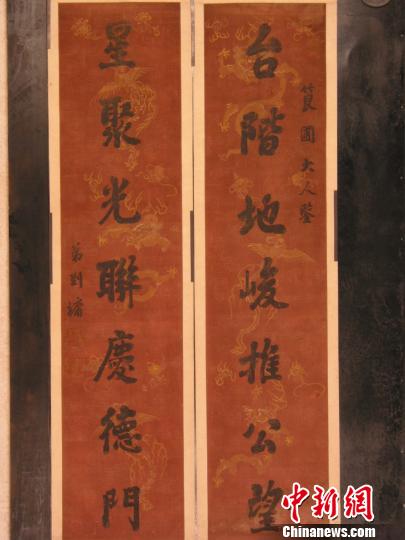 筤圃大人鑒
台階地峻推公望
星聚光聯慶德門
弟劉墉
中新网
Chinanews.com